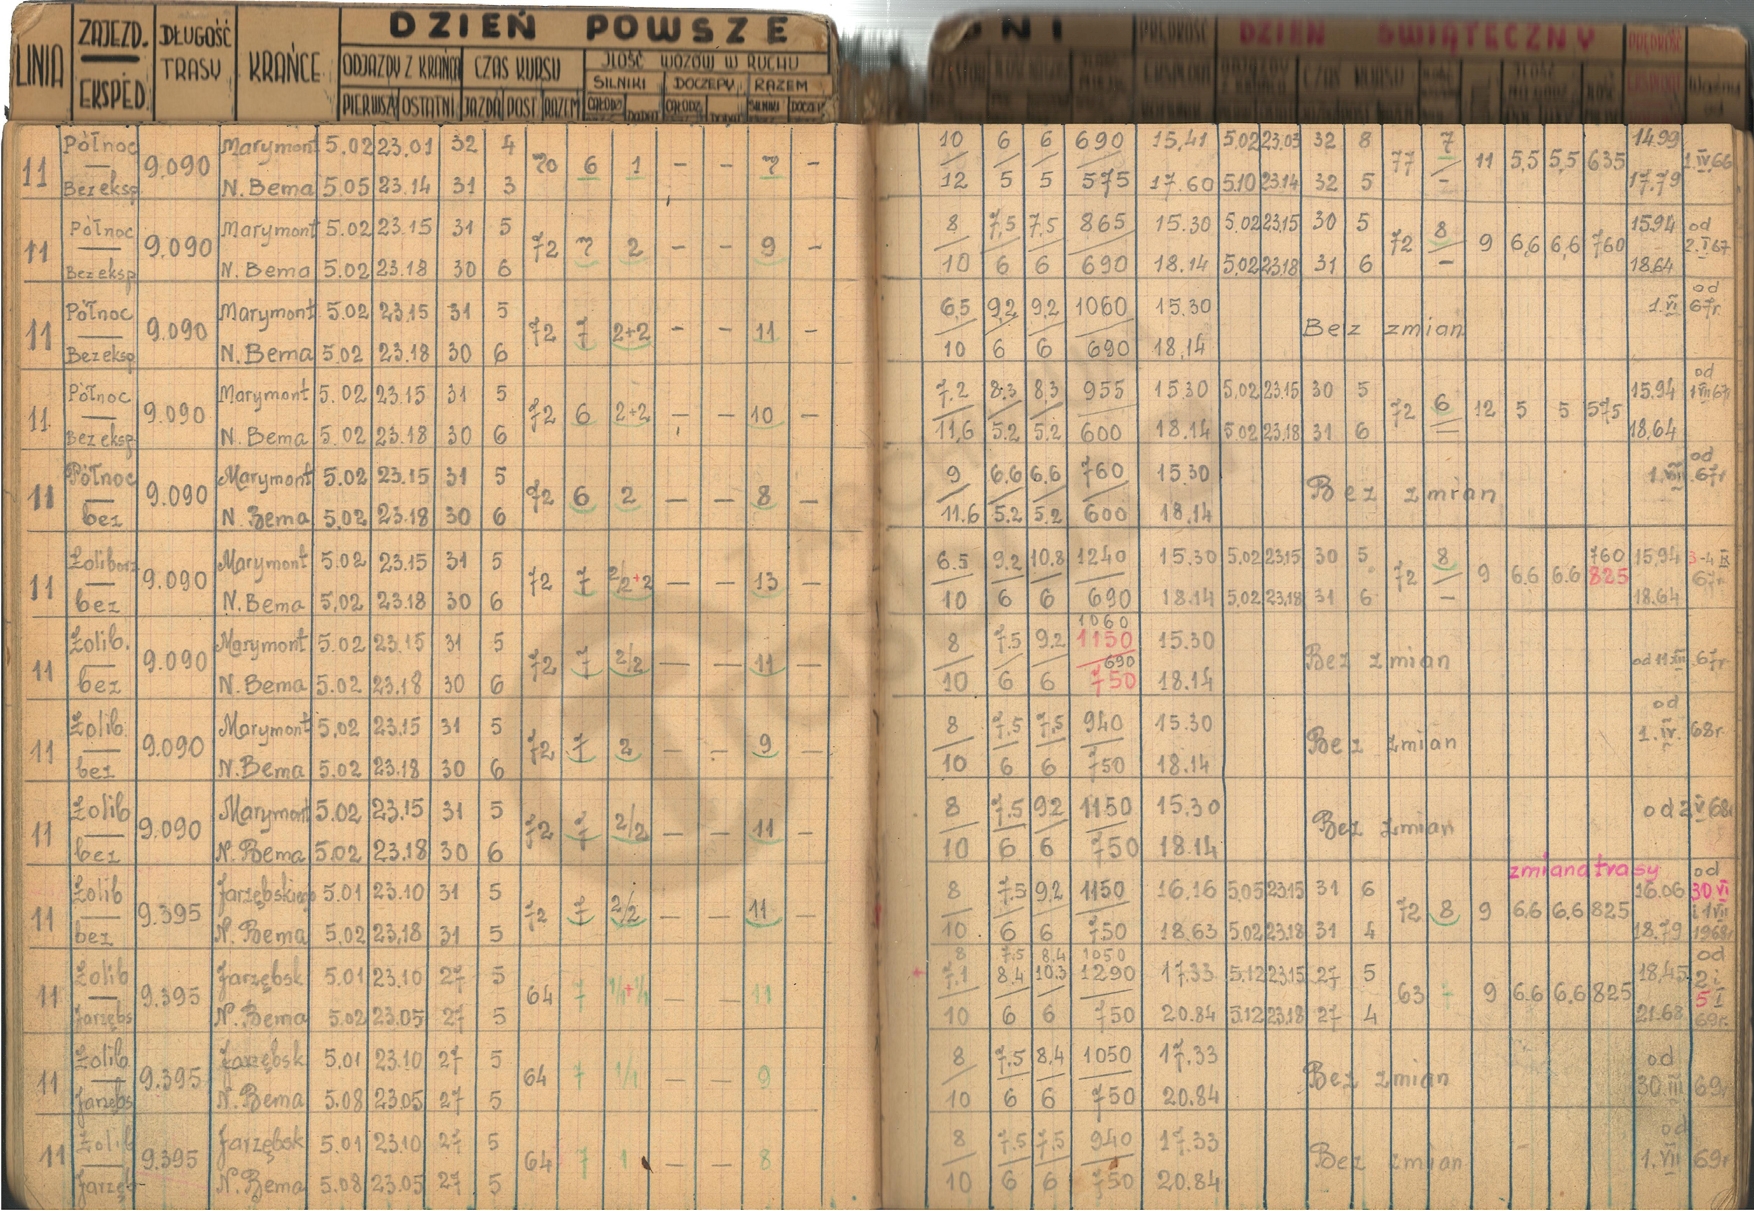 LINIA ZAJEZD. EKSPÉD. DŁUGOŚĆ TRASY KRAŃCE DZIEŃ POWSZE DNI DZIEŃ ŚWIĄTECZNY
ODJAZDY Z KRAŃCA CZAS KURSU JLOŚĆ WOZÓW W RUCHU
SILNIKI DOCZEPY RAZEM
PIERWSZY OSTATNI JAZDA POST RAZEM
11 Północ — Bez eksp 9.090 Marymont 5.02 23.01 32 4 70 6 1 – – 7 – 10 6 6 690 15,41 5.02 23.03 32 8 77 7 11 5,5 5,5 635 14.99 1.IV.66
N. Bema 5.05 23.14 31 3 12 5 5 575 17.60 5.10 23.14 32 5 – 17.79
11 Północ — Bez eksp 9.090 Marymont 5.02 23.15 31 5 72 7 2 – – 9 – 8 7,5 7,5 865 15.30 5.02 23.15 30 5 72 8 9 6,6 6,6 760 15.94 od 2.I.67
N. Bema 5.02 23.18 30 6 10 6 6 690 18.14 5.02 23.18 31 6 – 18.64
11 Północ — Bez eksp 9.090 Marymont 5.02 23.15 31 5 72 7 2+2 – – 11 – 6,5 9,2 9,2 1060 15.30 Bez zmian od 1.VI 67r.
N. Bema 5.02 23.18 30 6 10 6 6 690 18,14
11 Północ — Bez eksp 9.090 Marymont 5.02 23.15 31 5 72 6 2+2 – – 10 – 7,2 8,3 8,3 955 15.30 5.02 23.15 30 5 72 6 12 5 5 575 15.94 od 1 VII 67r
N. Bema 5.02 23.18 30 6 11,6 5.2 5.2 600 18.14 5.02 23.18 31 6 18.64
11 Północ — bez 9.090 Marymont 5.02 23.15 31 5 72 6 2 – – 8 – 9 6,6 6,6 760 15.30 Bez zmian od 67r
N. Bema 5.02 23.18 30 6 11.6 5.2 5.2 600 18.14
11 Żoliborz — bez 9.090 Marymont 5.02 23.15 31 5 72 7 2/2+2 – – 13 – 6.5 9,2 10,8 1240 15.30 5.02 23.15 30 5 72 8 9 6.6 6.6 760 825 15,94 3-4 IX 67r.
N. Bema 5.02 23.18 30 6 10 6 6 690 18.14 5.02 23.18 31 6 – 18.64
11 Żolib. — bez 9.090 Marymont 5.02 23.15 31 5 72 7 2/2 – – 11 – 8 7.5 9,2 1060 1150 15.30 Bez zmian od 11 XII 67r.
N. Bema 5.02 23.18 30 6 10 6 6 690 750 18.14
11 Żolib. — bez 9.090 Marymont 5.02 23.15 31 5 72 7 2 – – 9 – 8 7,5 7,5 940 15.30 Bez zmian od 1.IV. 68r.
N. Bema 5.02 23.18 30 6 10 6 6 750 18.14
11 Żolib — bez 9.090 Marymont 5.02 23.15 31 5 72 7 2/2 – – 11 – 8 7.5 9,2 1150 15.30 Bez zmian od 2 V 68r
N. Bema 5.02 23.18 30 6 10 6 6 750 18.14
zmiana trasy
11 Żolib — bez 9.395 Jarzębskiego 5.01 23.10 31 5 72 7 2/2 – – 11 – 8 7.5 9,2 1150 16.16 5.05 23.15 31 6 72 8 9 6,6 6,6 825 16.06 od 30 VI i 1 VII 1968r
N. Bema 5.02 23.18 31 5 10 6 6 750 18.63 5.02 23.18 31 4 18.79
8 7.5 8.4 1050
11 Żolib — Jarzębs 9.395 Jarzębsk 5.01 23.10 27 5 64 7 1/1+1/1 – – 11 7.1 8.4 10.3 1290 17.33 5.12 23.15 27 5 63 7 9 6.6 6,6 825 18,45 od 2 i 5 I 69r.
N. Bema 5.02 23.05 27 5 10 6 6 750 20.84 5.12 23.18 27 4 21.63
11 Żolib — Jarzębs 9.395 Jarzębsk 5.01 23.10 27 5 64 7 1/1 – – 9 8 7,5 8,4 1050 17.33 Bez zmian od 30.III 69r
N. Bema 5.08 23.05 27 5 10 6 6 750 20.84
11 Żolib — Jarzęb 9.395 Jarzębsk 5.01 23.10 27 5 64 7 1 – – 8 8 7.5 7,5 940 17.33 Bez zmian od 1.VII 69r
N. Bema 5.08 23.05 27 5 10 6 6 750 20.84